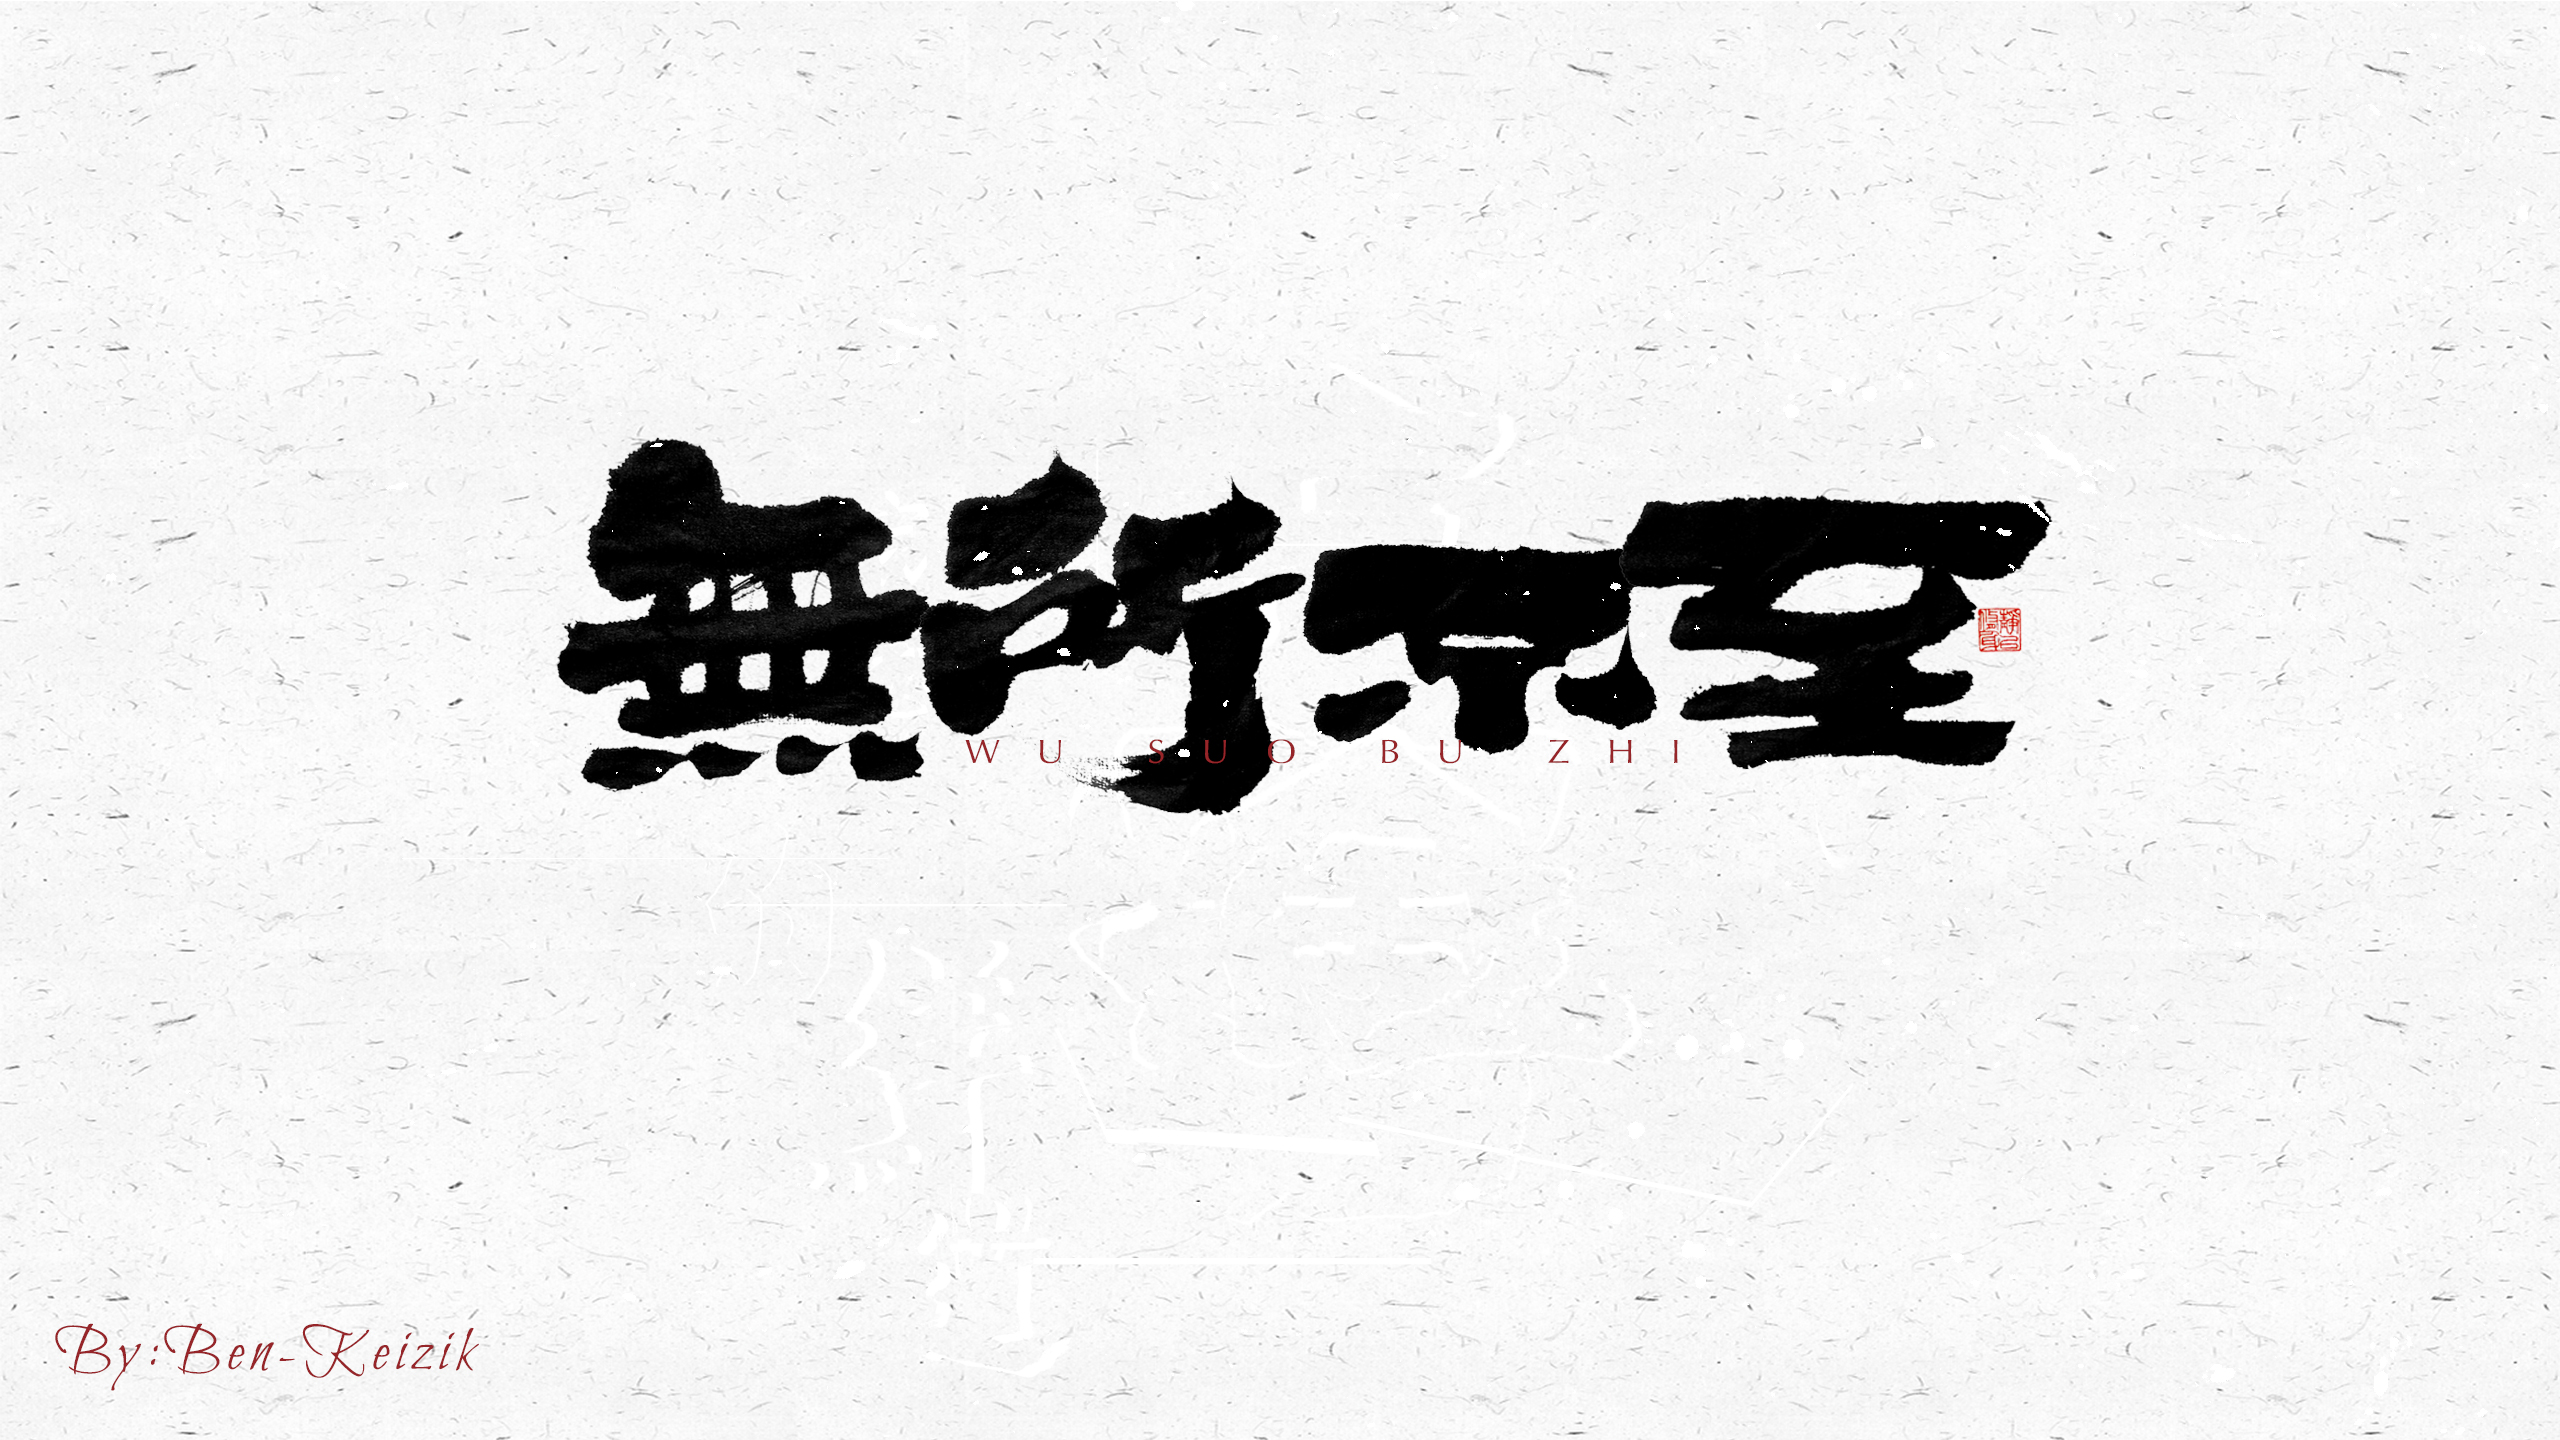 無所不至
WU SUO BU ZHI
By:Ben-Keizik